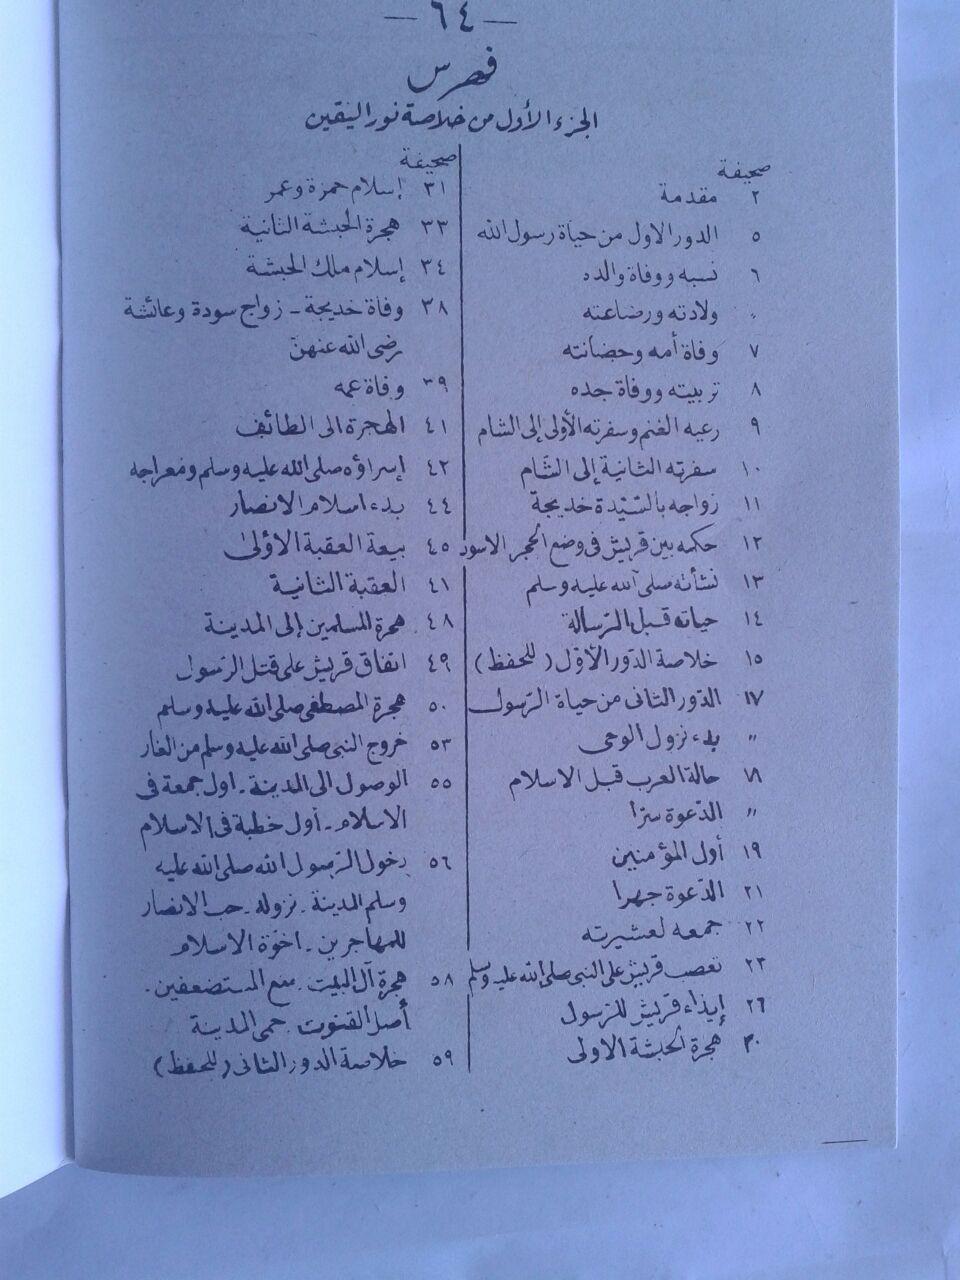 — ٦٤ —
فهرس
الجزء الأول من خلاصة نور اليقين
صحيفة
٢ مقدمة
٥ الدور الاول من حياة رسول الله
٦ نسبه ووفاة والده
〃 ولادته ورضاعته
٧ وفاة أمه وحضانته
٨ تربيته ووفاة جده
٩ رعيه الغنم وسفرته الأولى إلى الشام
١٠ سفرته الثانية إلى الشام
١١ زواجه بالسّيّدة خديجة
١٢ حكمه بين قريش فى وضع الحجر الاسود
١٣ نشأته صلى الله عليه وسلم
١٤ حياته قبل الرّسالة
١٥ خلاصة الدّور الأوّل (للحفظ)
١٧ الدّور الثانى من حياة الرّسول
〃 بدء نزول الوحى
١٨ حالة العرب قبل الاسلام
〃 الدّعوة سرّا
١٩ أول المؤمنين
٢١ الدّعوة جهرا
٢٢ جمعه لعشيرته
٢٣ تعصب قريش على النبى صلى الله عليه وسلم
٢٦ إيذاء قريش للرّسول
٣٠ هجرة الحبشة الاولى
صحيفة
٣١ إسلام حمزة وعمر
٣٣ هجرة الحبشة الثانية
٣٤ إسلام ملك الحبشة
٣٨ وفاة خديجة - زواج سودة وعائشة
رضى الله عنهنّ
٣٩ وفاة عمه
٤١ الهجرة الى الطائف
٤٢ إسراؤه صلى الله عليه وسلم ومعراجه
٤٤ بدء اسلام الانصار
٤٥ بيعة العقبة الأولىٰ
٤١ العقبة الثانية
٤٨ هجرة المسلمين إلى المدينة
٤٩ اتفاق قريش على قتل الرّسول
٥٠ هجرة المصطفى صلى الله عليه وسلم
٥٣ خروج النبى صلى الله عليه وسلم من الغار
٥٥ الوصول الى المدينة - اول جمعة فى
الاسلام - أول خطبة فى الاسلام
٥٦ دخول الرّسول الله صلى الله عليه
وسلم المدينة - نزوله - حب الانصار
للمهاجرين - اخوّة الاسلام
٥٨ هجرة آل البيت - منع المستضعفين -
أصل القنوت - حمى المدينة
٥٩ خلاصة الدور الثانى (للحفظ)